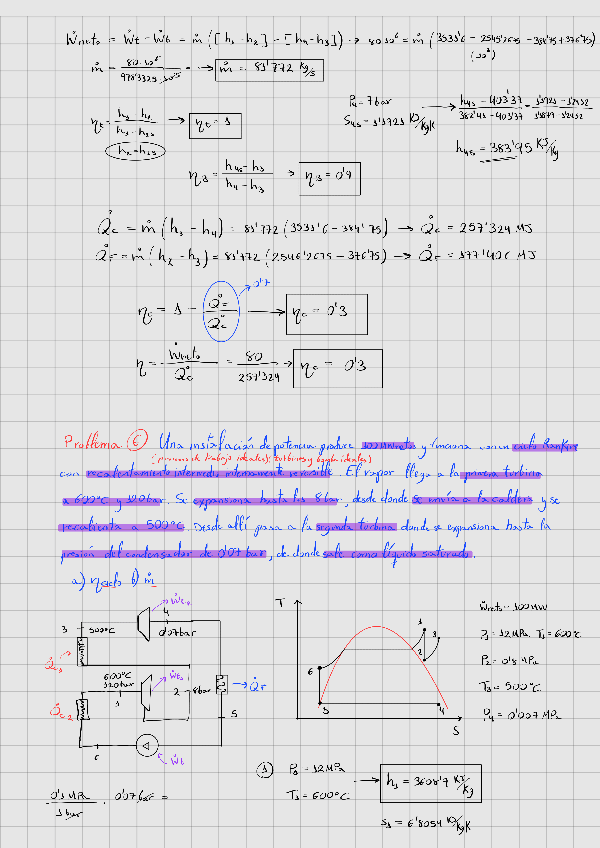 Ẇneto = Ẇt - Ẇb = ṁ ([h₁ - h₂] - [h₄ - h₃]) → 80·10⁶ = ṁ (3533'6 - 2545'2675 - 384'75 + 376'75)
(10³)
ṁ = 80·10⁶ / 978'3325·10³ → ṁ = 81'772 kg/s
P₄ = 7 bar
S₄s = 1'1723 KJ/KgK
h₄s = 383'95 KJ/Kg
ηt = → ηt = 1
h₂ = h₂s
ηB = h₄s - h₃ / h₄ - h₃ → ηB = 0'9
Q̇c = ṁ (h₁ - h₄) = 81'772 (3533'6 - 384'75) → Q̇c = 257'324 MJ
Q̇F = ṁ (h₂ - h₃) = 81'772 (2546'2675 - 376'75) → Q̇F = 177'406 MJ
0'7
ηc = 1 - Q̇F / Q̇c → ηc = 0'3
η = Ẇneto / Q̇c = 80 / 257'324 → ηc = 0'3
Problema 6 Una instalación de potencia produce 100 MW netos y funciona con un ciclo Rankine
(procesos de trabajo ideales): turbinas y bomba ideales
con recalentamiento intermedio internamente reversible. El vapor llega a la primera turbina
a 600ºC y 120 bar. Se expansiona hasta los 8 bar, desde donde se envía a la caldera y se
recalienta a 500ºC. Desde allí pasa a la segunda turbina donde se expansiona hasta la
presión del condensador de 0'07 bar, de donde sale como líquido saturado.
a) ηciclo b) ṁ
3 500ºC
4
0'07 bar
600ºC
120 bar
1
2 8 bar
Q̇F
5
6
Ẇb
T
1
3
2
6
5
4
S
Ẇneto = 100 MW
P₁ = 12 MPa T₁ = 600ºC
P₂ = 0'8 MPa
T₃ = 500ºC
P₄ = 0'007 MPa
0'1 MPa / 1 bar · 0'07 bar =
① P₁ = 12 MPa
T₁ = 600ºC
→ h₁ = 3608'9 KJ/Kg
s₁ = 6'8054 KJ/KgK